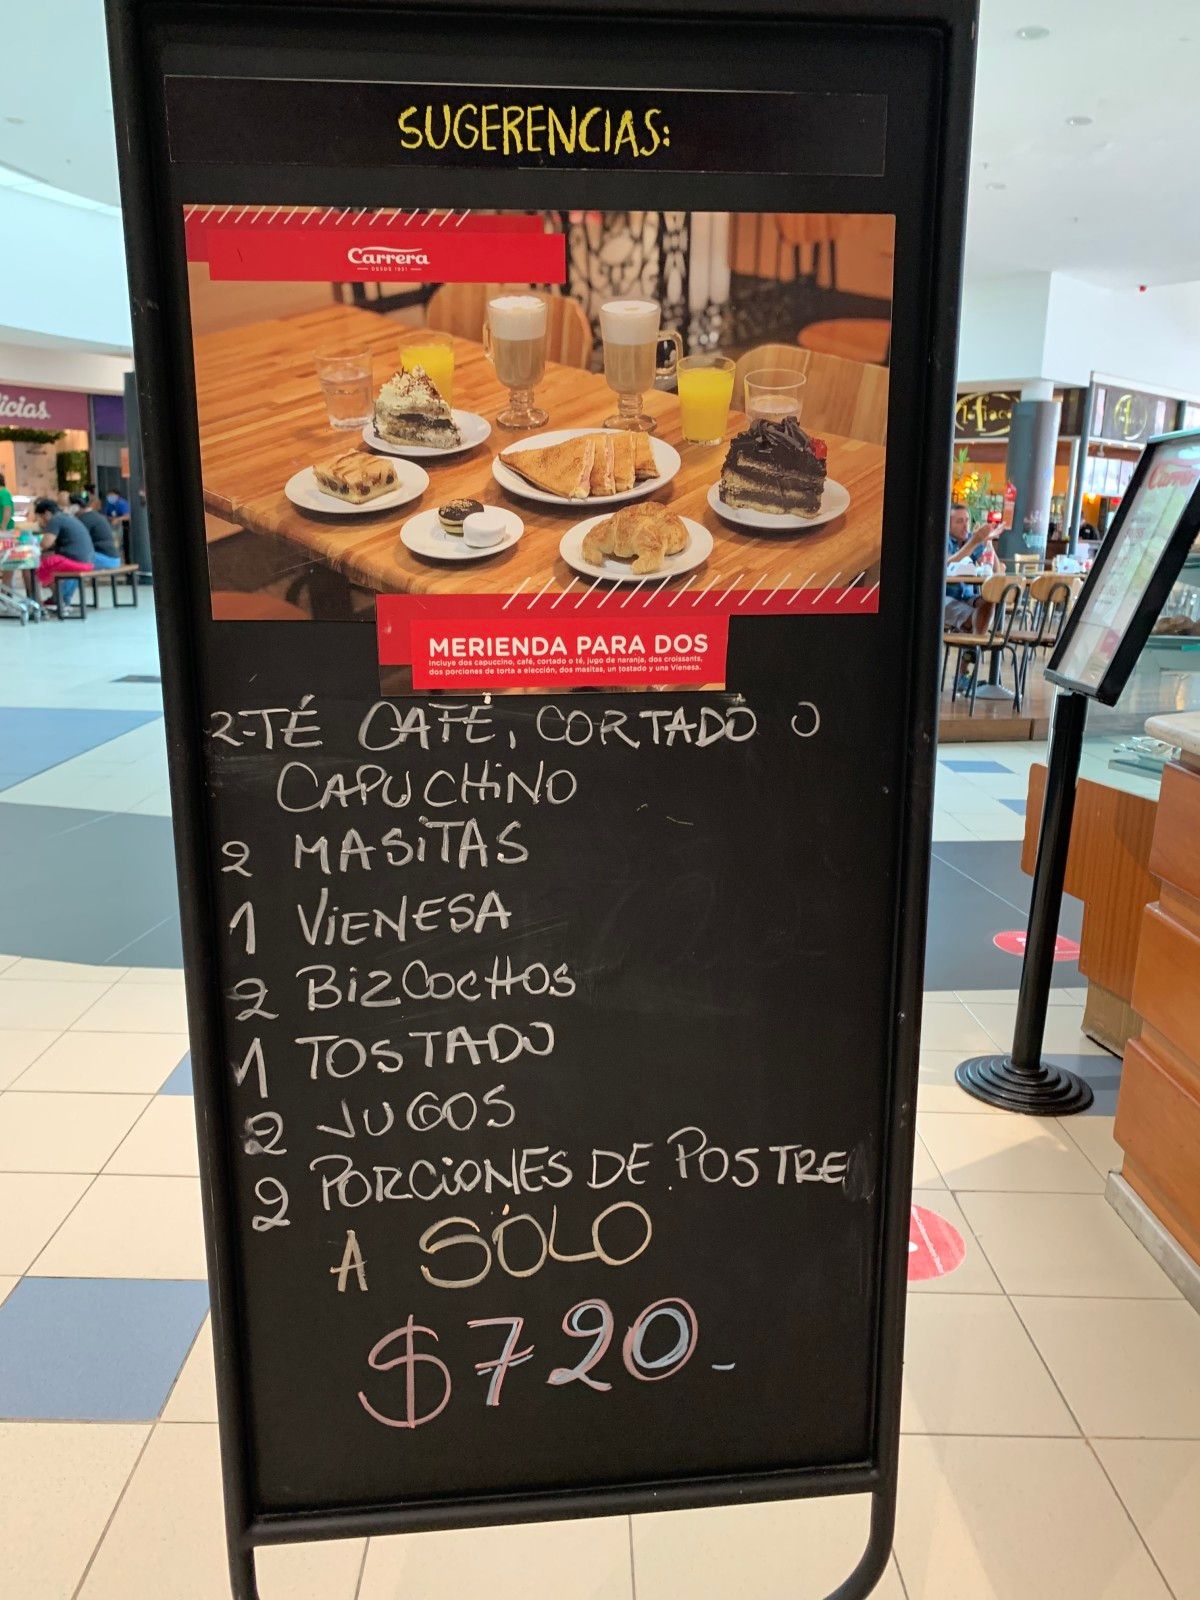 SUGERENCIAS:
Carrera
DESDE 1931
MERIENDA PARA DOS
Incluye dos capuccino, café, cortado o té, jugo de naranja, dos croissants,
dos porciones de torta a elección, dos masitas, un tostado y una Vienesa.
2-TÉ CAFÉ, CORTADO O
CAPUCHINO
2 MASITAS
1 VIENESA
2 BIZCOCHOS
1 TOSTADO
2 JUGOS
2 PORCIONES DE POSTRE
A SOLO
$720-
icias